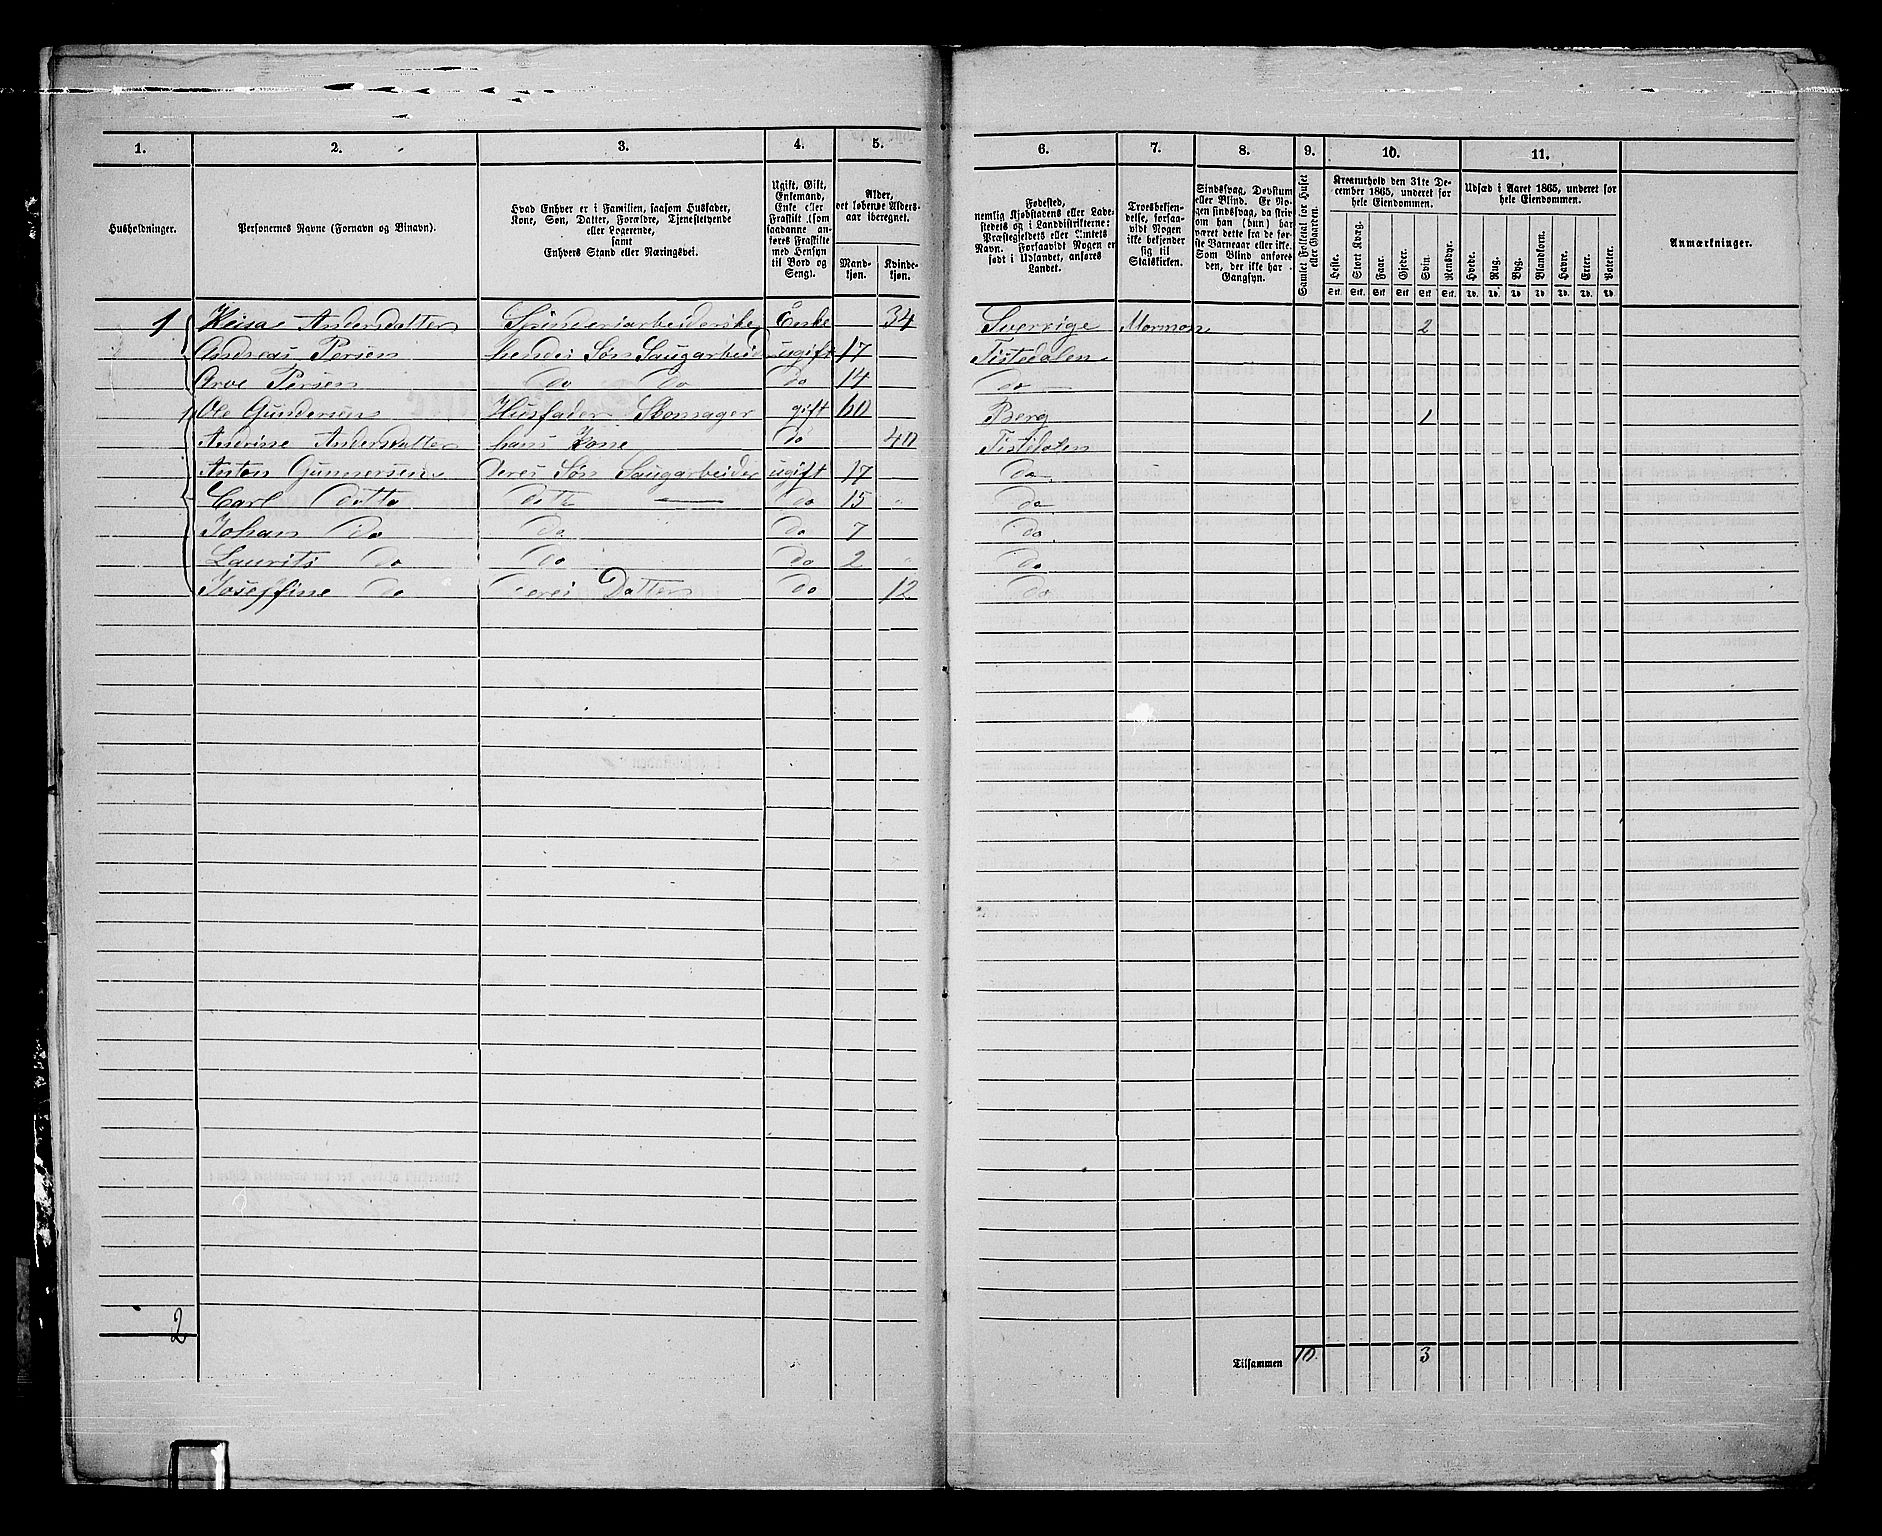 1. 2. 3. 4. 5. 6. 7. 8. 9. 10. 11.
Husholdninger.
Personernes Navne (Fornavn og Binavn).
Hvad Enhver er i Familien, saasom Husfader,
Kone, Søn, Datter, Forældre, Tjenestetyende
eller Logerende,
samt
Enhvers Stand eller Næringsvei.
Ugift, Gift,
Enkemand,
Enke eller
Fraskilt (som
saadanne an-
føres Fraskilte
med Hensyn
til Bord og
Seng).
Alder,
det løbende Alders-
aar iberegnet.
Mand-
kjøn.
Kvinde-
kjøn.
Fødested,
nemlig Kjøbstadens eller Lade-
stedets og i Landdistrikterne:
Præstegjeldets eller Amtets
Navn. Forsaavidt Nogen er
født i Udlandet, anføres
Landet.
Troesbekjen-
delse, forsaa-
vidt Nogen
ikke bekjender
sig til
Statskirken.
Sindssvag, Døvstum
eller Blind. Er No-
gen sindssvag, da skriv
om han (hun) har
været dette fra de før-
ste Barneaar eller ikke.
Som Blind anføres
den, der ikke har
Gangsyn.
Samlet Folketal for Huset
eller Gaarden.
Kreaturhold den 31te De-
cember 1865, underet for
hele Eiendommen.
Heste. Stort Kvæg. Faar. Gjeder. Svin. Rensdyr.
Stk. Stk. Stk. Stk. Stk. Stk.
Udsæd i Aaret 1865, underet for
hele Eiendommen.
Hvede. Rug. Byg. Blandkorn. Havre. Erter. Poteter.
Td. Td. Td. Td. Td. Td. Td.
Anmærkninger.
1 Andersdatter Spinderiarbeiderske Enke 34 Sverrige Mormon 2
Andreas Persen hendes Søn Saugarbeid ugift 17 Tistedalen
Persen do do do 14 do
1 Ole Gundersen Husfader gift 60 Berg 1
Anerine Andersdatter hans Kone do 40 Tistedalen
Anton Gunnersen deres Søn Saugarbeider ugift 17 do
Carl ditto ditto do 15 do
Johan do do do 7 do
Laurits do do do 2 do
Joseffine do deres Datter do 12 do
2
Tilsammen 10. 3